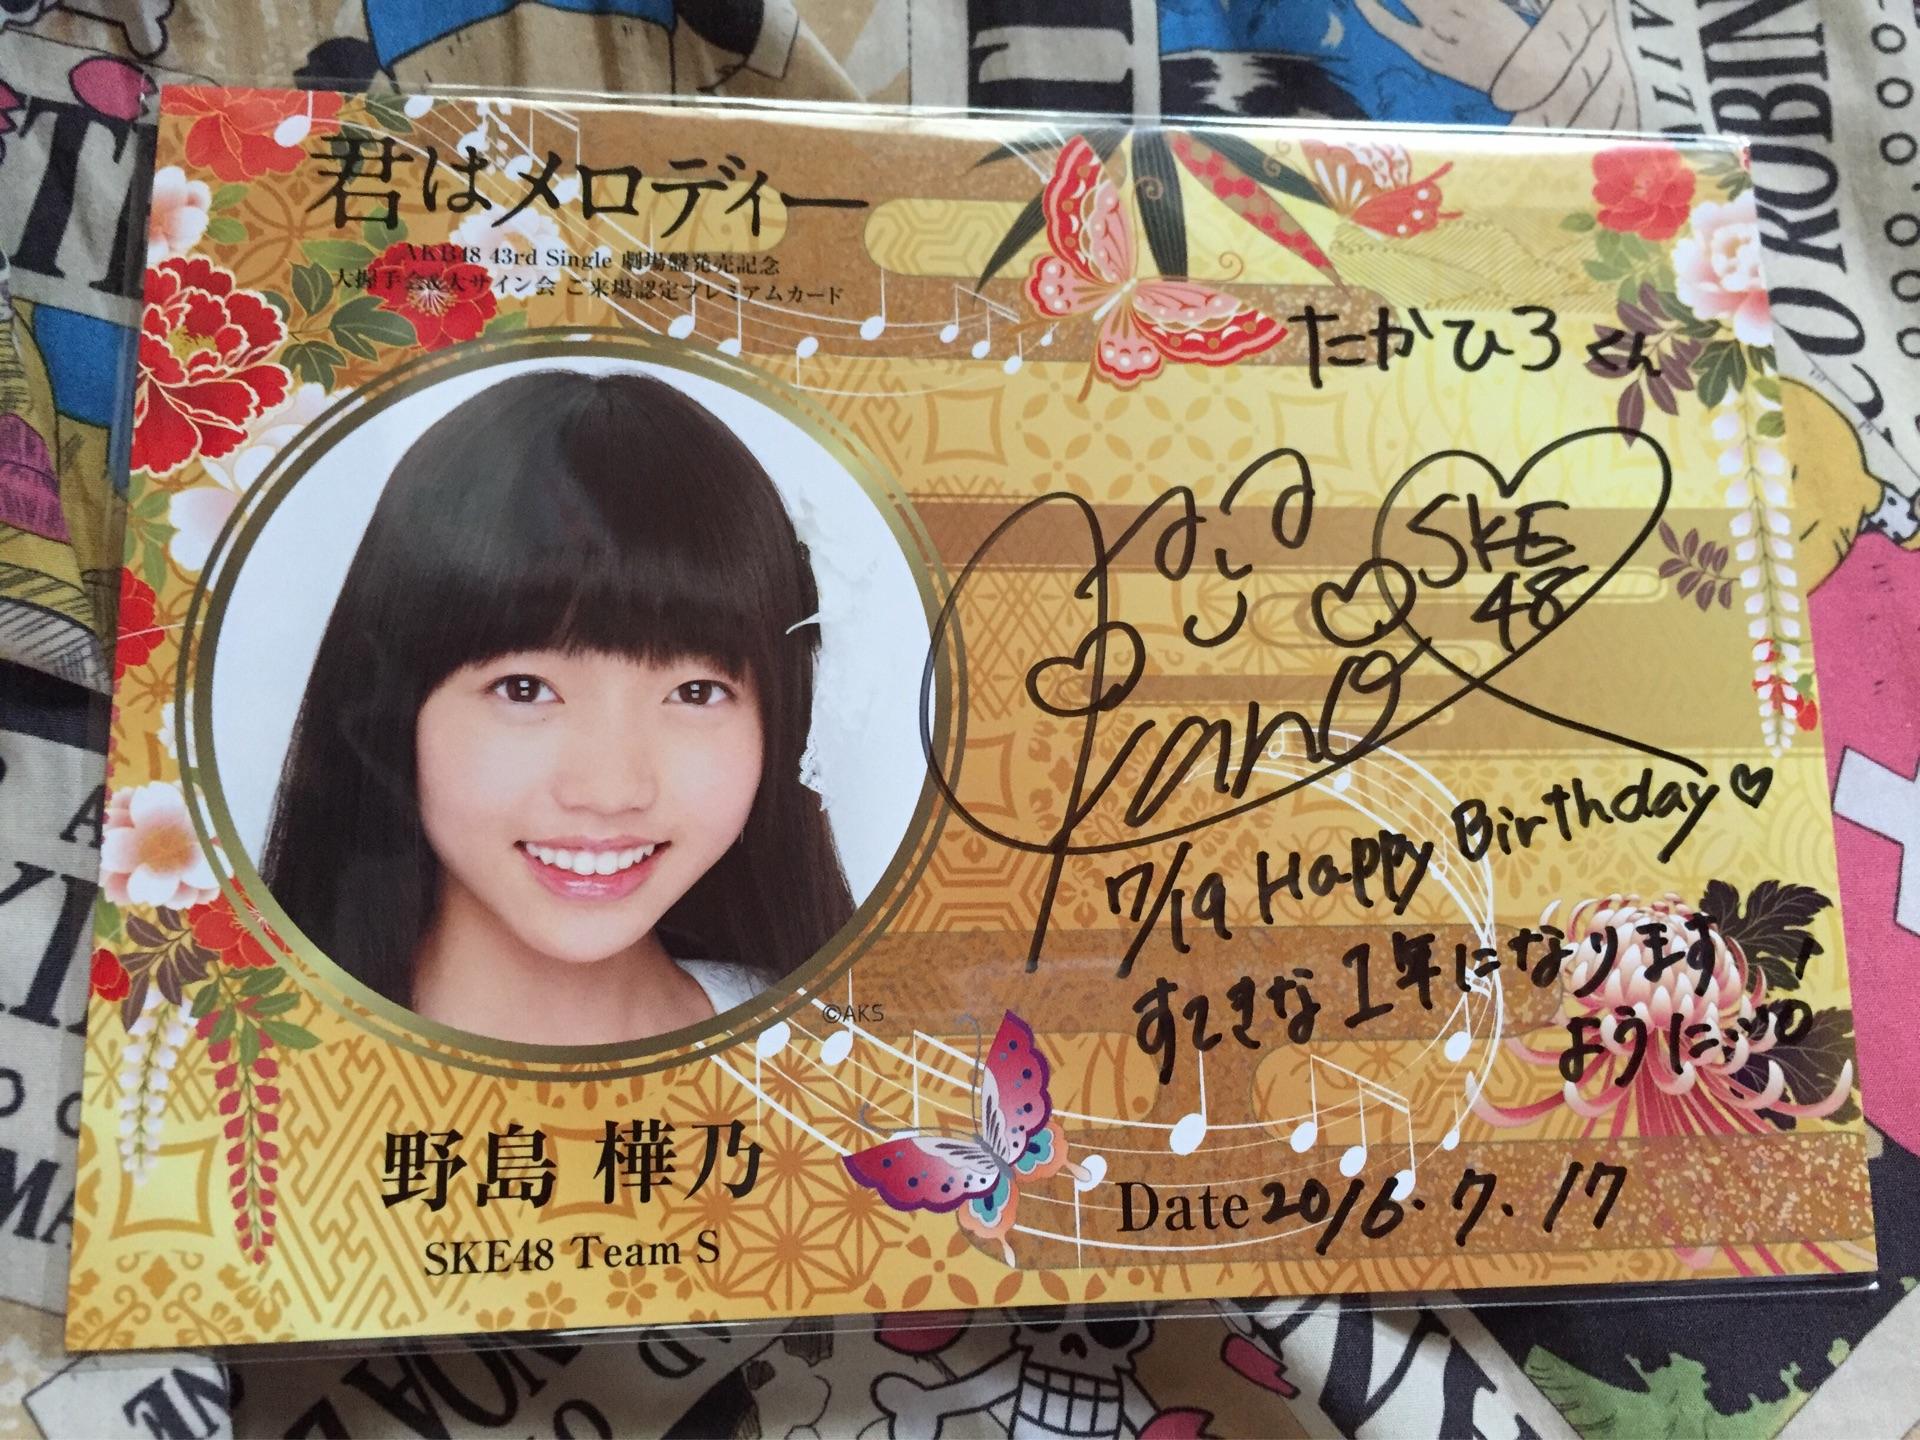 君はメロディー
AKB48 43rd Single 劇場盤発売記念
大握手会&大サイン会 ご来場認定プレミアムカード
たかひろくん
SKE
48
Kano
7/19 Happy Birthday♡
すてきな1年になります
ように
©AKS
野島 樺乃
SKE48 Team S
Date 2016.7.17
ROBIN